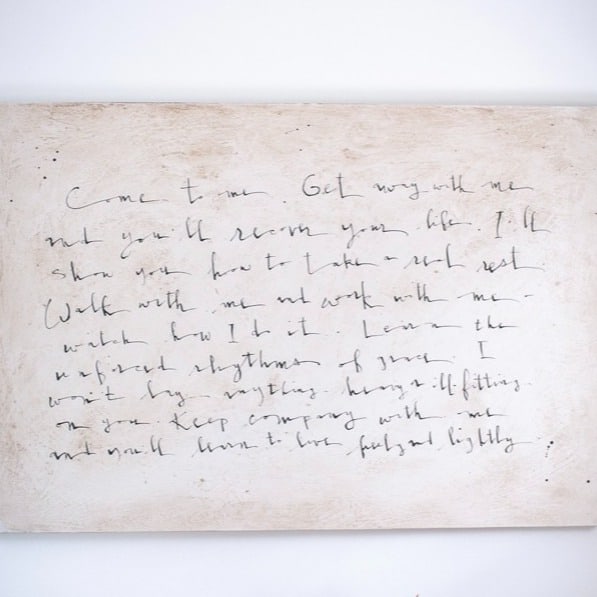 Come to me. Get away with me
and you'll recover your life. I'll
show you how to take a real rest.
Walk with me and work with me -
watch how I do it. Learn the
unforced rhythms of grace. I
won't lay anything heavy or ill-fitting
on you. Keep company with me
and you'll learn to live freely and lightly